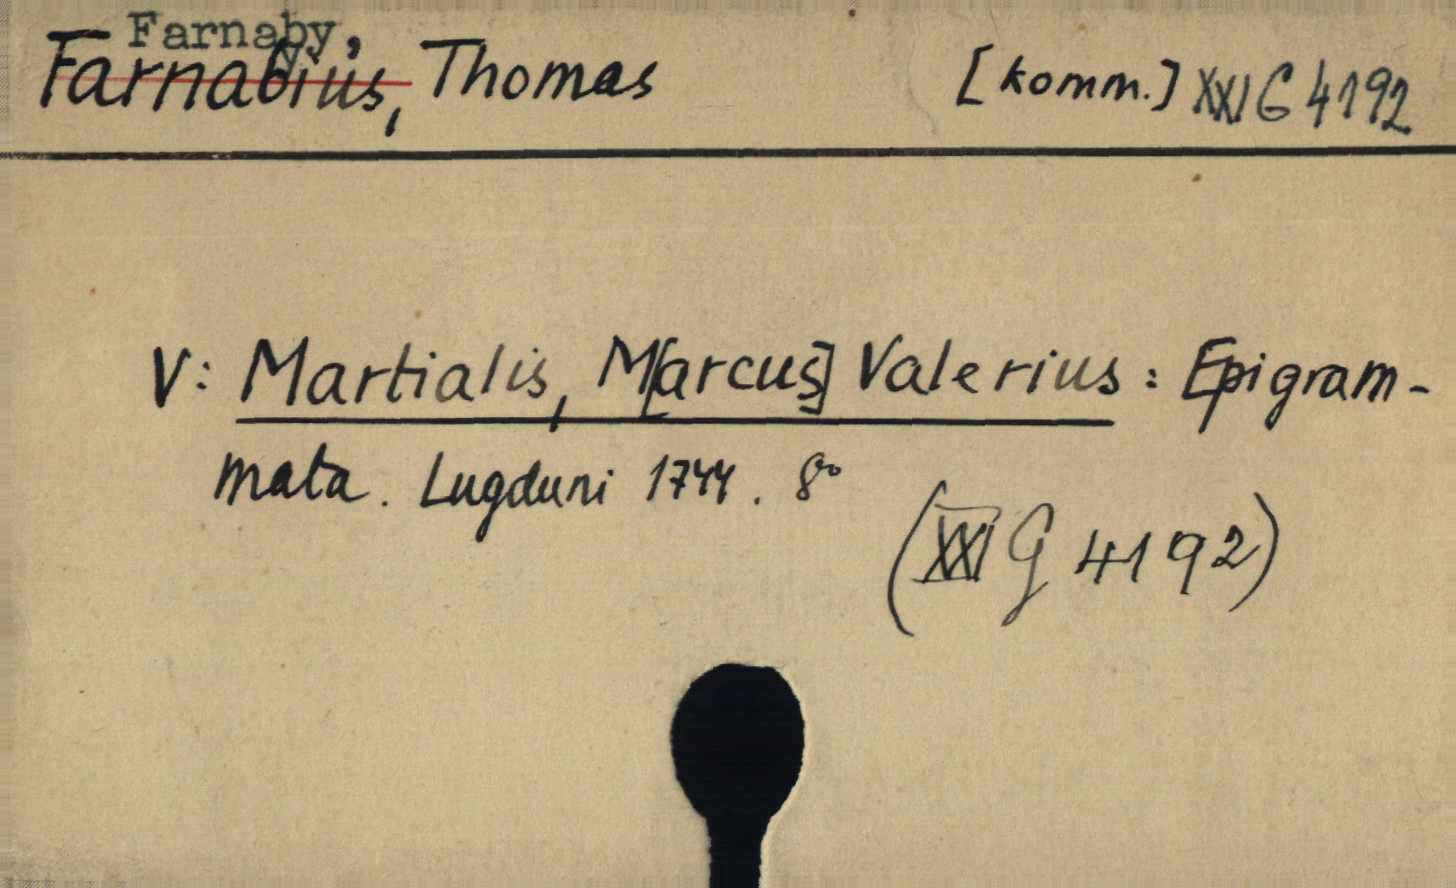 Farnaby,
Farnabius, Thomas [komm.] XXI G 4192
V: Martialis, M[arcus] Valerius : Epigram-
mata. Lugduni 1744. 8°
(XXI G 4192)